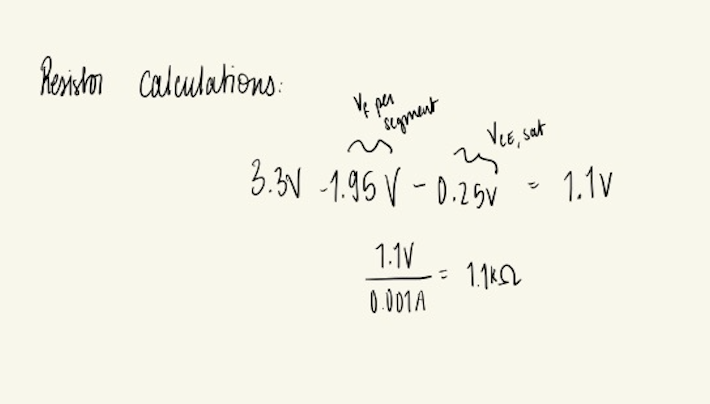 Resistor calculations:
Vf per
segment
VCE, sat
3.3V - 1.95V - 0.25V = 1.1V
1.1V
0.001A
= 1.1kΩ